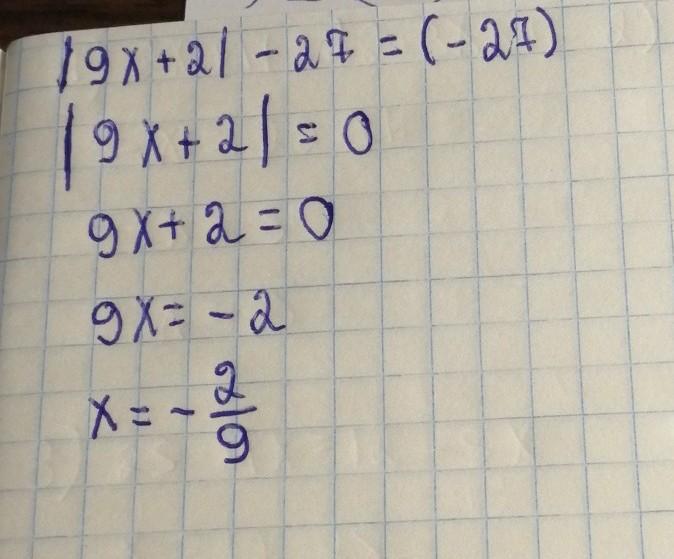 |9x+2| - 27 = (-27)
|9x+2| = 0
9x+2=0
9x= -2
x = - 2/9